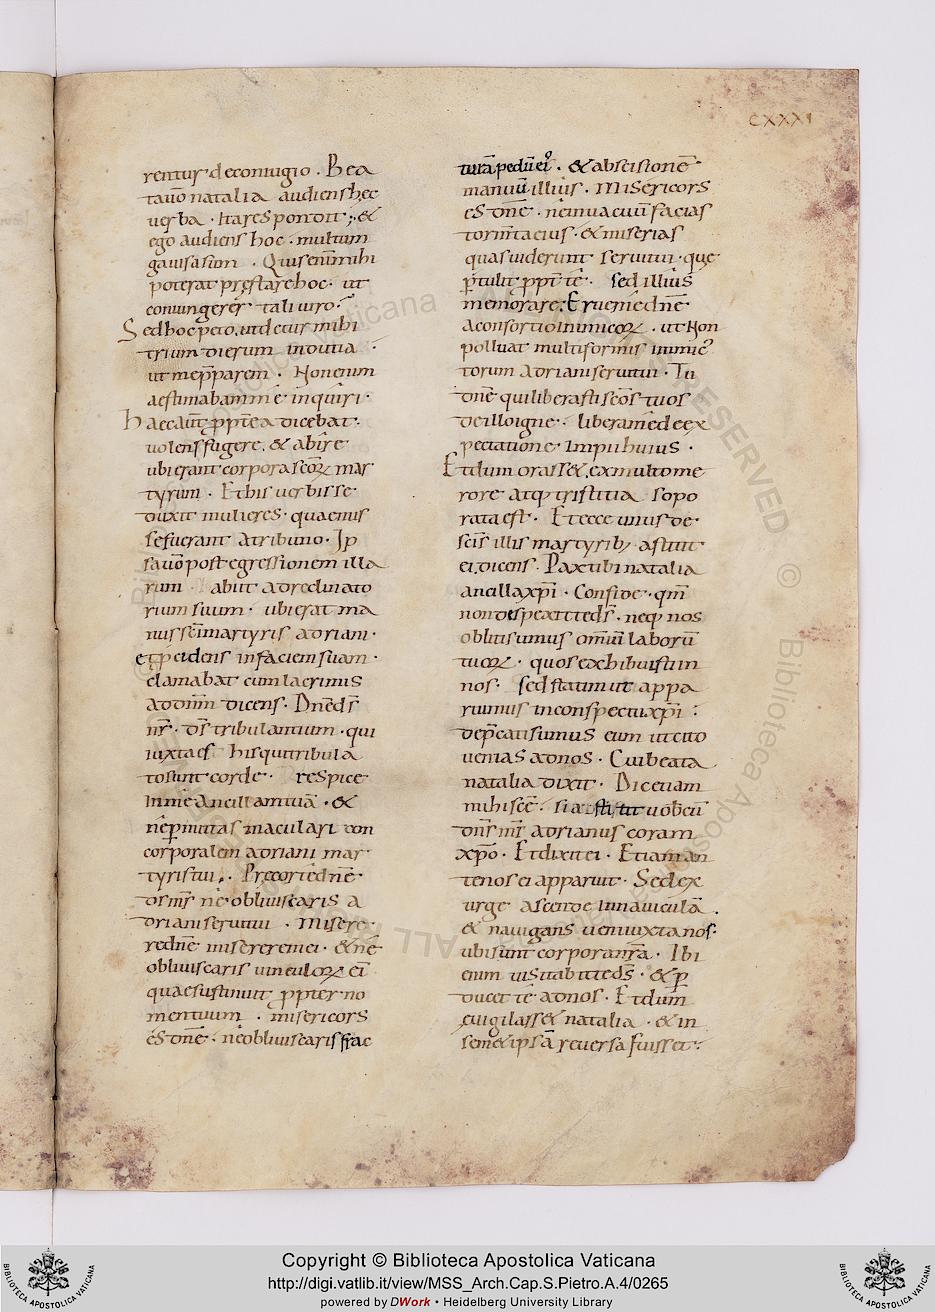 CXXXI
rentur deconiugio . Bea
tauō natalia audiens hec
uerba . Ita respondit ; &
ego audiens hoc . multum
gauisa sum . Quis enim mihi
poterat prestare hoc . ut
coniungerer tali uiro .
Sed hoc peto . ut detur mihi
trium dierum indutia .
ut me p̄parem . Non enim
aestimabam me inquiri .
Haec aut̄ ppt̄ea dicebat .
uolens fugere . & abire
ubi erant corpora sc̄oꝝ mar
tyrum . Et his uerbis se
duxit mulieres . quae mis
se fuerant a tribuno . Ip
sa uō post egressionem illa
rum abiit ad reclinato
rium suum . ubi erat ma
nus sc̄i martyris adriani .
et p̄cidens in faciem suam .
clamabat cum lacrimis
ad dnm̄ dicens . Dn̄e ds̄
nr̄ . ds̄ tribulantium . qui
iuxta es his qui tribula
to sunt corde . respice
in me ancillam tuā . &
nē p̄mittas maculari con
corporalem adriani mar
tyris tui . Precor te dn̄e
ds̄ mr̄ nē obliuiscaris a
driani serui tui . Misere
re dn̄e miserere mei . & nē
obliuiscaris uinculoꝝ ei
quae sustinuit ppter no
men tuum . misericors
ēs dn̄e . nē obliuiscaris frac
turā pedū eiꝰ . & abscisionē
manuū illius . Misericors
ēs dn̄e . ne in uacuū facias
torm̄ta eius . & miserias
quas uiderunt serui tui . que
p̄tulit ppt̄ tē . sed illius
memorare . Erue me dn̄e
a consortio inimicoꝝ . ut non
polluat multiformis inimicꝰ
torum adriani serui tui . Tu
dn̄e qui liberasti sc̄os tuos
de illo igne . libera mē de ex
pectatione impii huius .
Et dum orass& . ex multo me
rore atq; tristitia sopo
rata est . Et ecce unus de
sc̄is illis martyrib; astitit
ei . dicens . Pax tibi natalia
ancilla xp̄i . Confide . qm̄
non despexit te ds̄ . neq; nos
obliti sumus omniū laborū
tuoꝝ . quos exhibuisti in
nos . sed statim ut appa
ruimus in conspectu xp̄i .
dep̄cati sumus eum ut cito
uenias ad nos . Cui beata
natalia dixit . Dic etiam
mihi sc̄e . si astitit uobiscū
dns̄ ms̄ adrianus coram
xp̄o . Et dixit ei . Etiam an
te nos ei apparuit . Sed ex
urge ascende in nauiculā .
& nauigans ueni iuxta nos .
ubi sunt corpora nr̄a . Ibi
enim uisitabit te ds̄ . & p̄
ducet tē ad nos . Et dum
euigilass& natalia . & in
semet ipsā reuersa fuisset .
Copyright © Biblioteca Apostolica Vaticana
http://digi.vatlib.it/view/MSS_Arch.Cap.S.Pietro.A.4/0265
powered by DWork • Heidelberg University Library